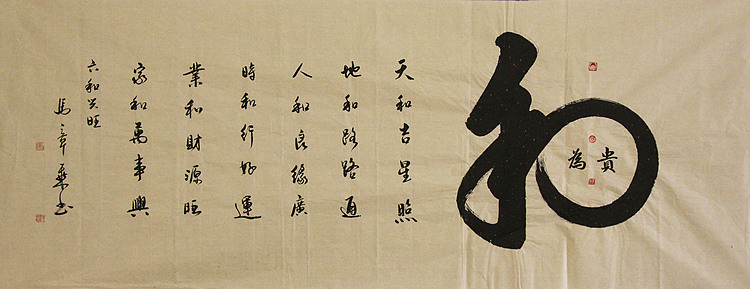 和
貴
為
天和吉星照
地和路路通
人和良緣廣
時和行好運
業和財源旺
家和萬事興
六和共旺
馬章乘书